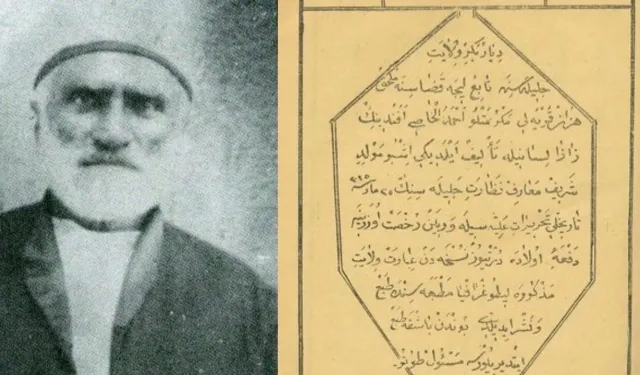 دیاربکر ولایت
جلیله سنه تابع لیجه قضاسنه ملحق
هزان قریه لی مکرمتلو احمد الخاصی افندینك
زازا لسانیله تألیف ایلدیکی اشبو مولد
شریف معارف نظارت جلیله سنك مارت
تاریخلی تحریرات علیه سیله ویریلن رخصت اوزرینه
دفعۀ اولاده درتیوز نسخه دن عبارت ولایت
مذکوره لیطوغرافیا مطبعه سنده طبع
ونشر ایدیلدی بوندن باشقه طبع
ایتدیریلورسه مسئول